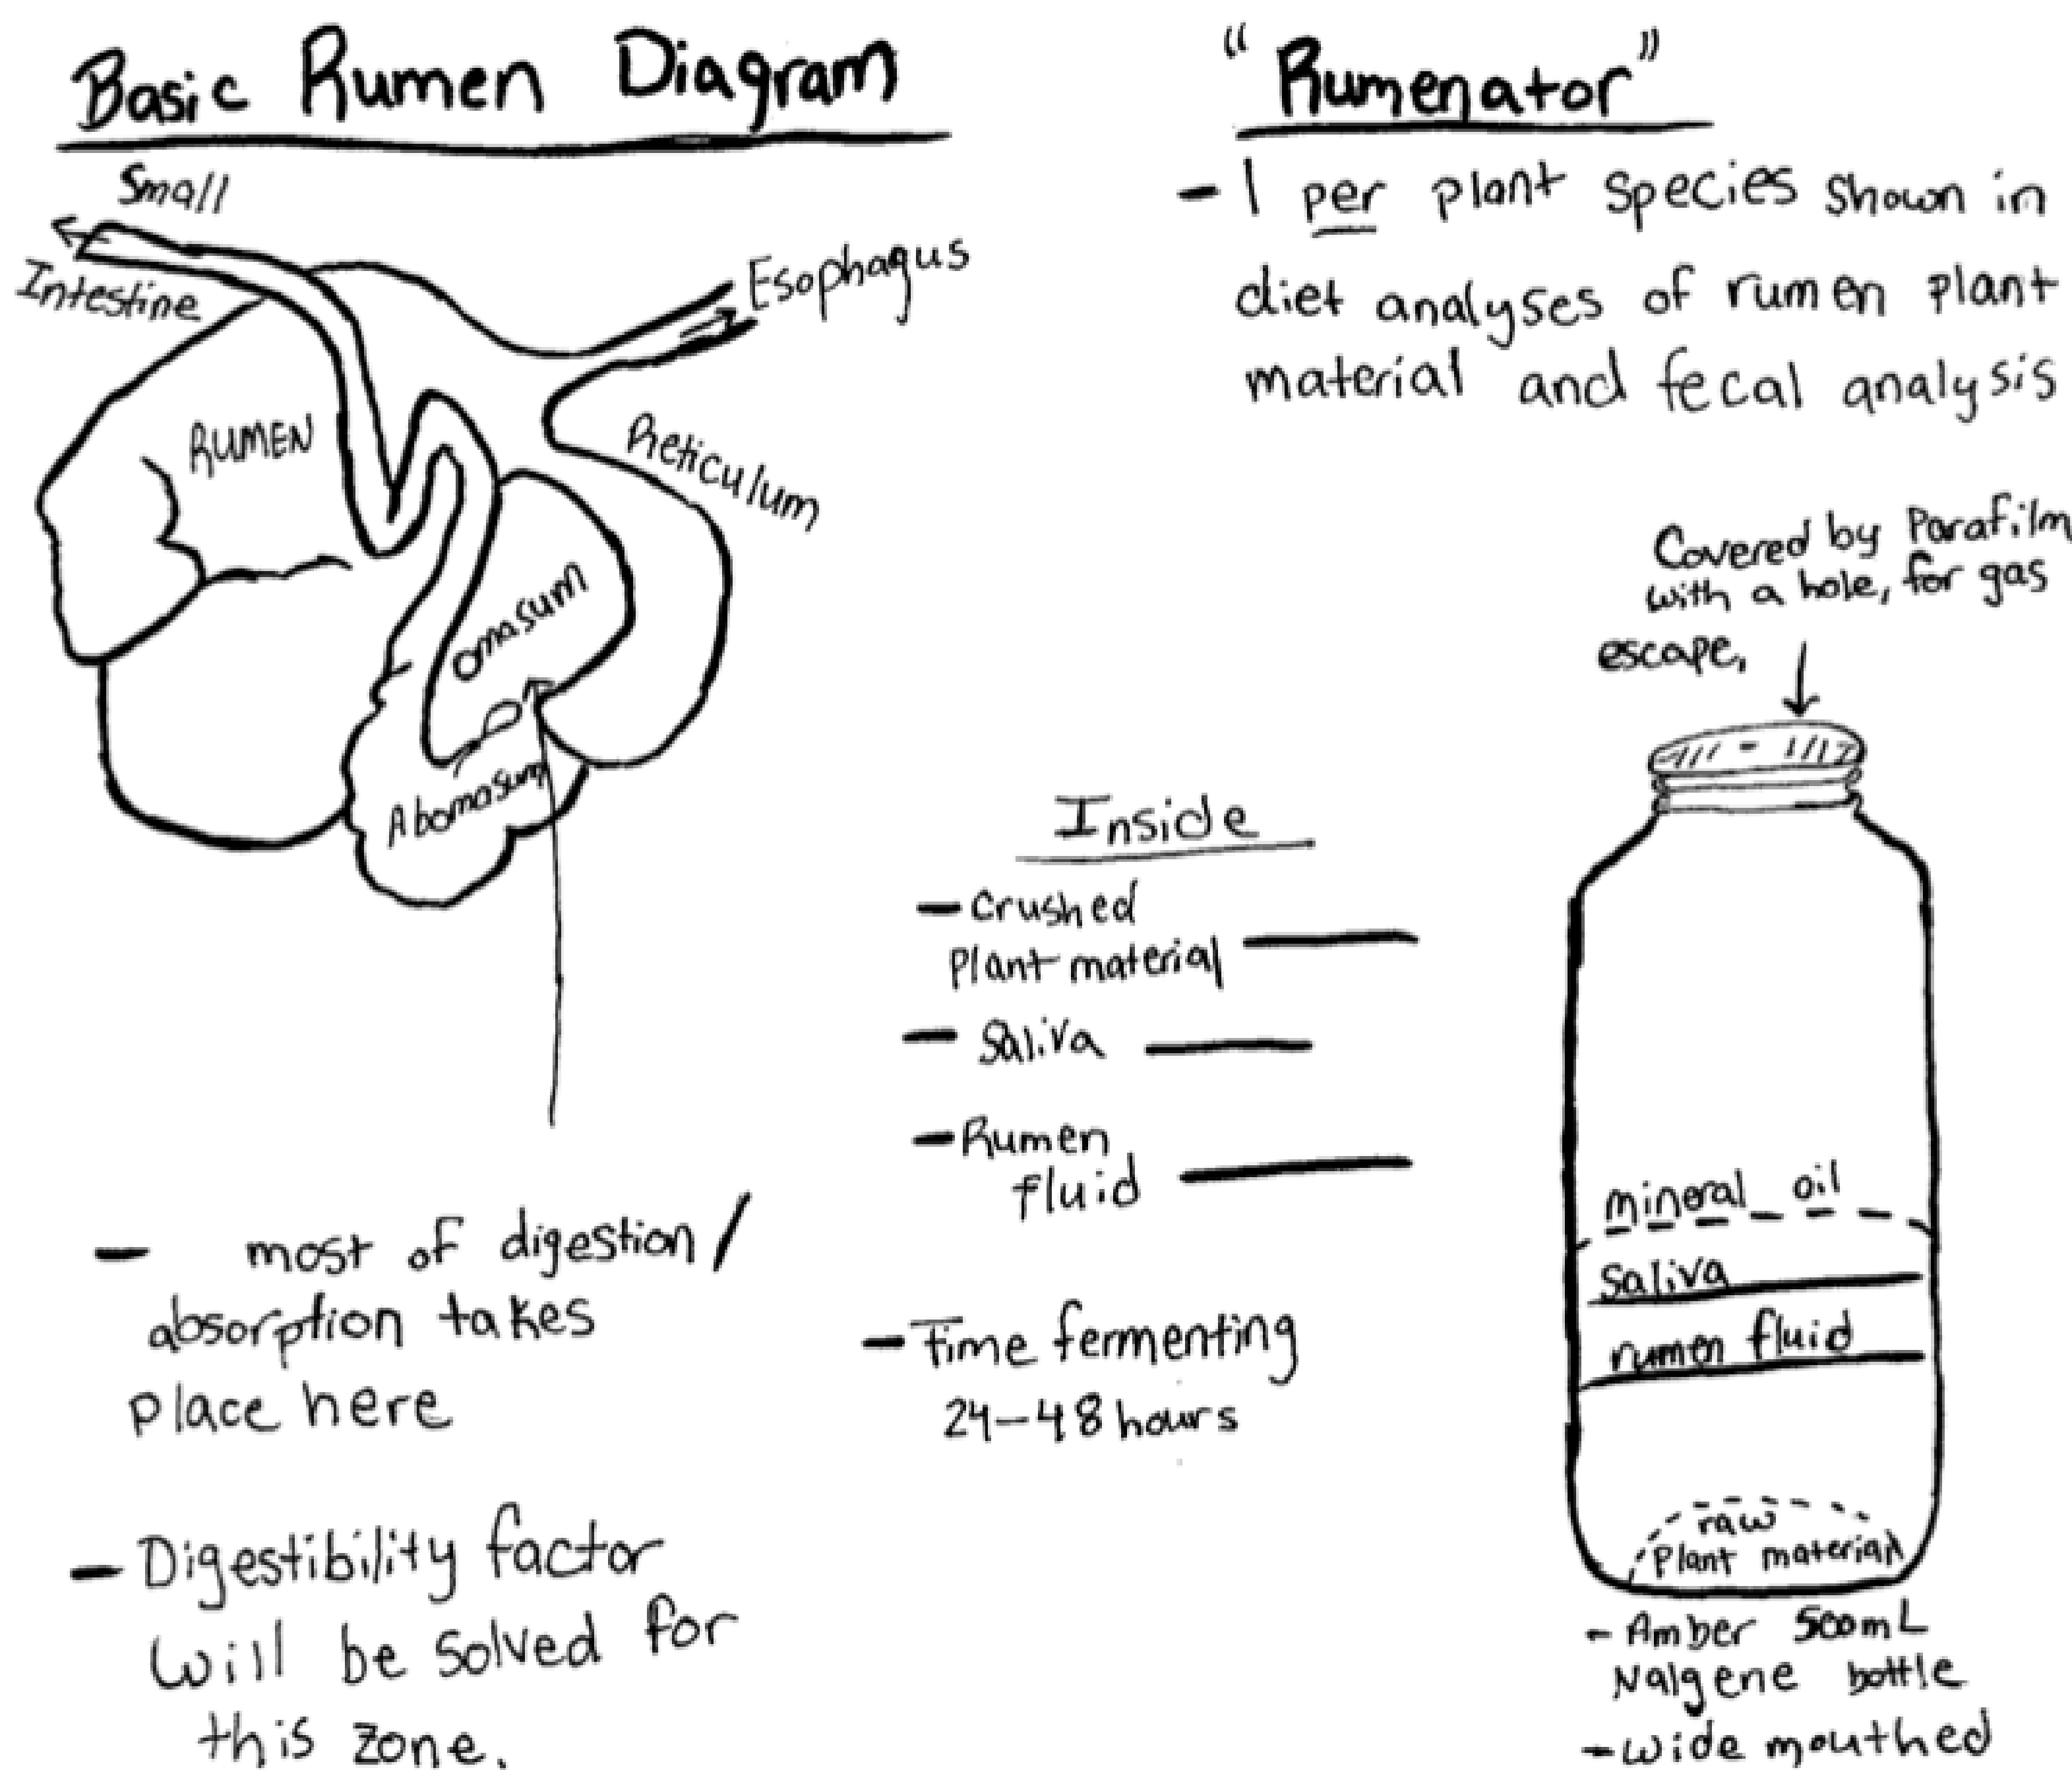 Basic Rumen Diagram
Small
Intestine
Esophagus
RUMEN
Reticulum
Omasum
Abomasum
- most of digestion/
absorption takes
place here
- Digestibility factor
will be solved for
this zone.
"Rumenator"
- 1 per plant species shown in
diet analyses of rumen plant
material and fecal analysis
Covered by Parafilm
with a hole, for gas
escape,
Inside
- Crushed
Plant material
- Saliva
- Rumen
fluid
- Time fermenting
24-48 hours
mineral oil
Saliva
rumen fluid
raw
Plant material
- Amber 500mL
Nalgene bottle
- wide mouthed